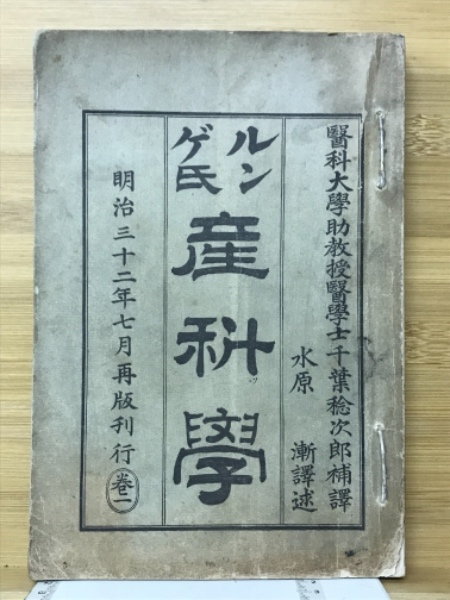 醫科大學助教授醫學士千葉稔次郎補譯
水原 漸譯述
ルンゲ氏
産科學
明治三十二年七月再版刊行 卷一